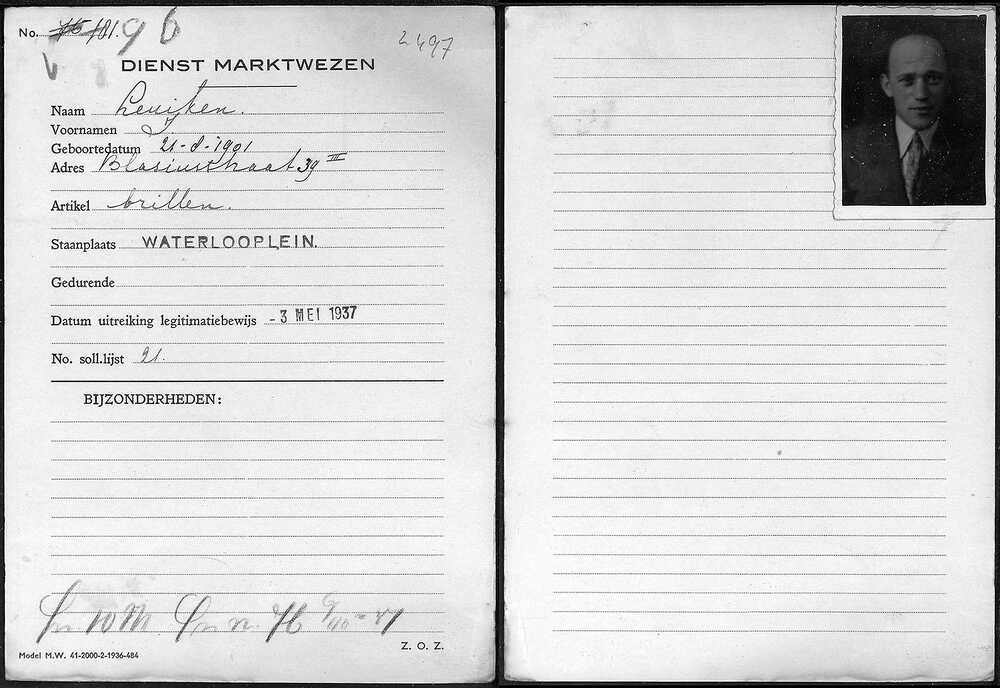 No. 115/181. 96
2497
DIENST MARKTWEZEN
Naam Leuijken.
Voornamen J.
Geboortedatum 21-8-1901
Adres Blasiusstraat 39 III
Artikel brillen.
Staanplaats WATERLOOPLEIN.
Gedurende
Datum uitreiking legitimatiebewijs - 3 MEI 1937
No. soll.lijst 21.
BIJZONDERHEDEN:
Z. O. Z.
Model M.W. 41-2000-2-1936-484